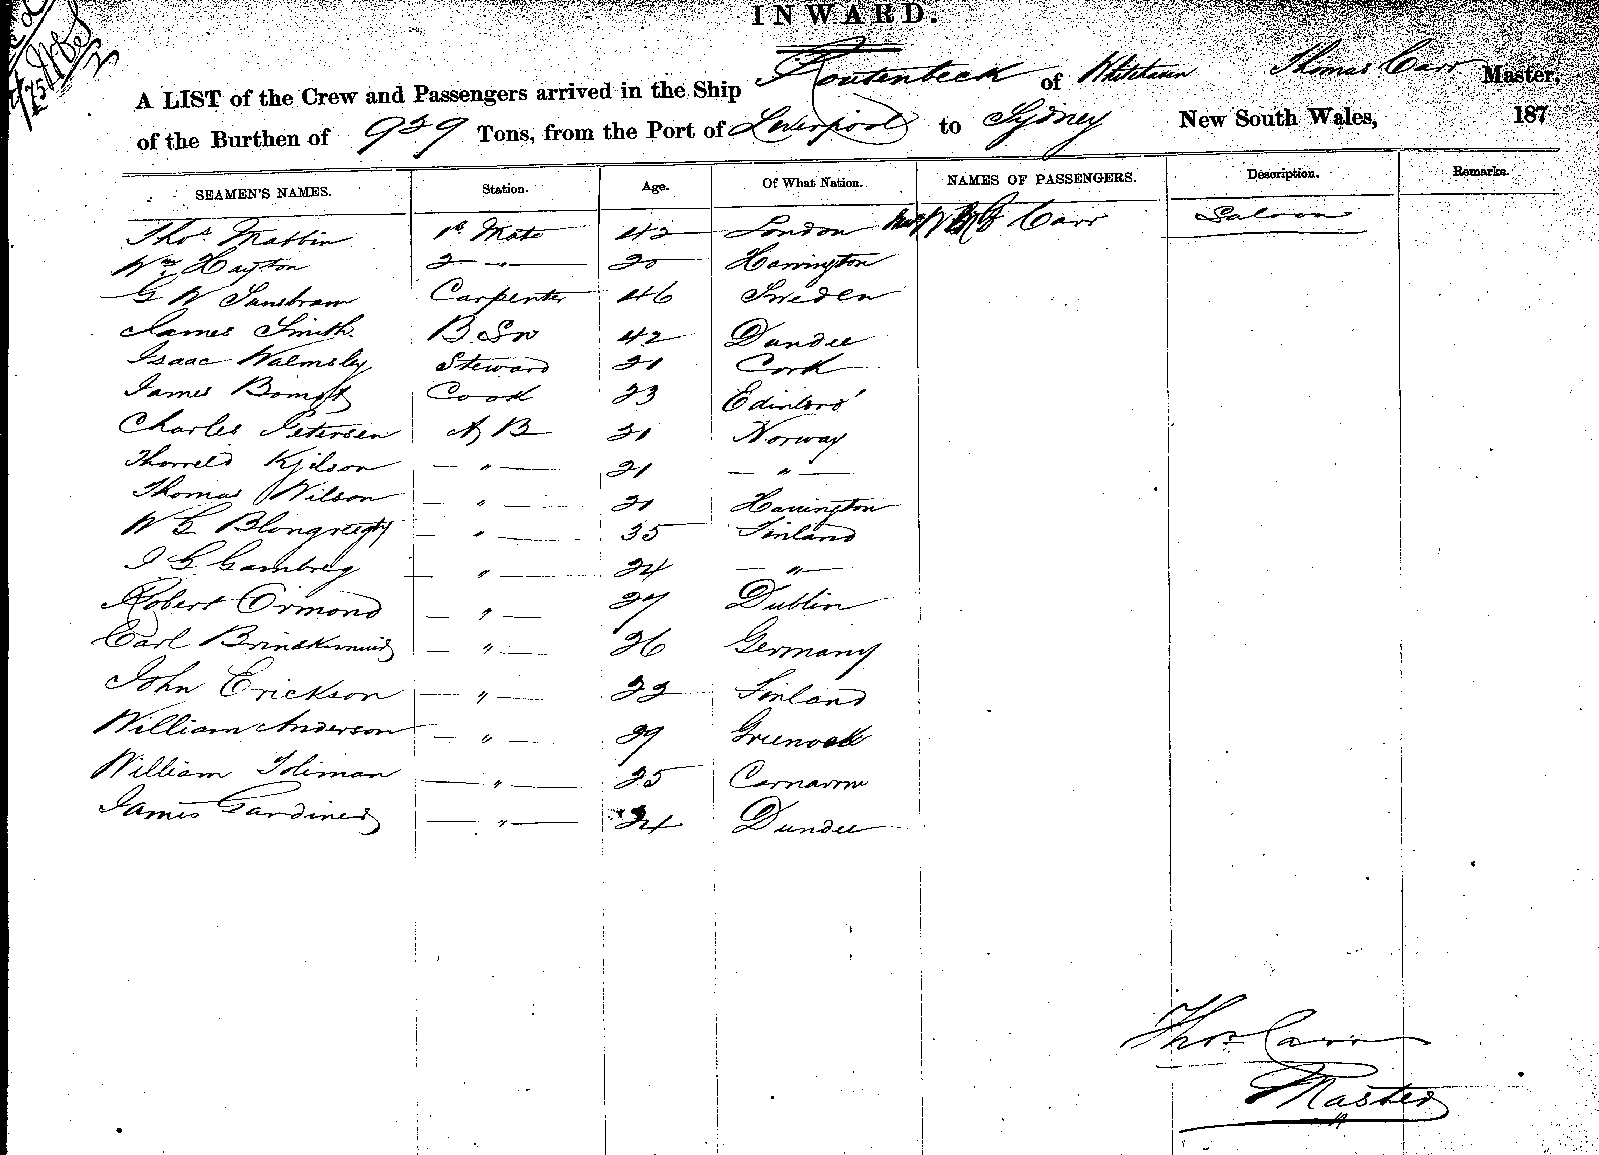 INWARD.
A LIST of the Crew and Passengers arrived in the Ship Routenbeck of Whitehaven Thomas Carr Master,
of the Burthen of 939 Tons, from the Port of Liverpool to Sydney New South Wales, 187
SEAMEN'S NAMES. Station. Age. Of What Nation. NAMES OF PASSENGERS. Description. Remarks.
Thos. 1st Mate 42 London Carr Saloon
Wm Hayton 2 " 20 Harrington
G W Carpenter 46 Sweden
James Smith B Sn 42 Dundee
Isaac Walmsley Steward 21 Cork
James Cook 23 Edinboro'
Charles Petersen A B 21 Norway
Kjilson " 21 "
Thomas Wilson " 21 Harrington
W G " 35 Finland
J G " 24 "
Robert Ormond " 27 Dublin
Carl " 26 Germany
John Erickson " 22 Finland
William Anderson " 29 Greenock
William " 25 Carnarvon
James Gardiner " 24 Dundee
Thos Carr
Master